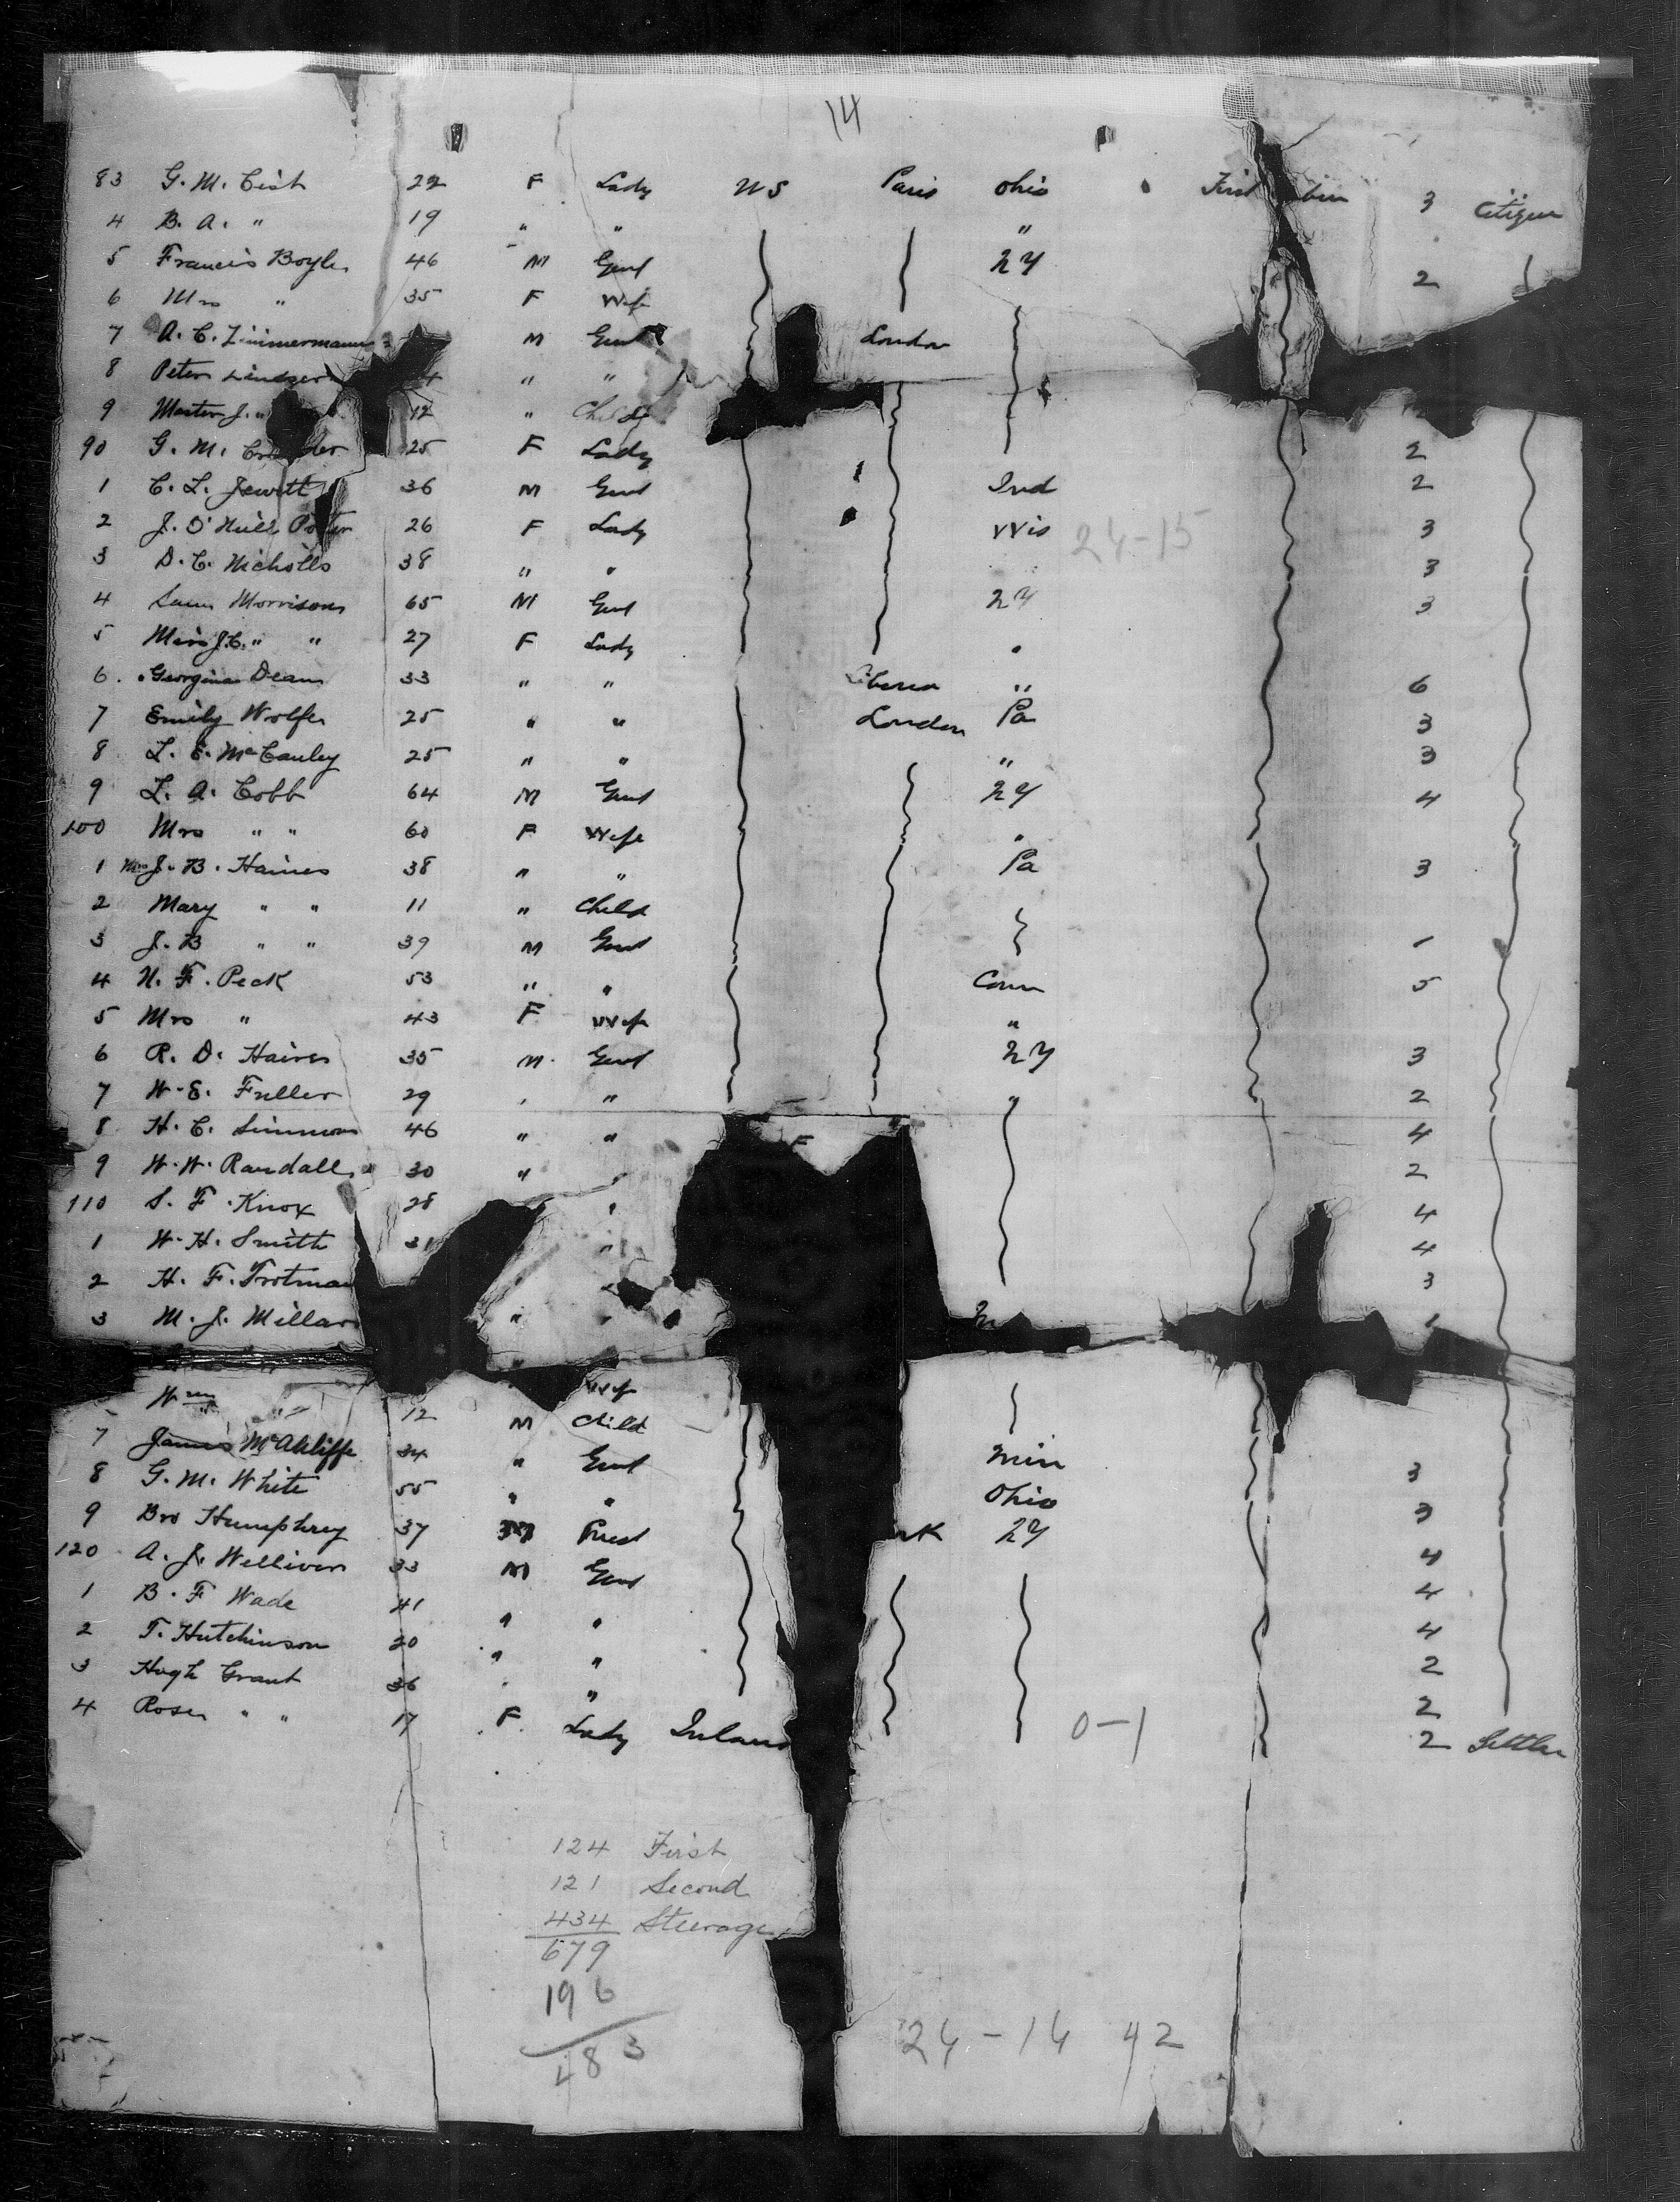 14
83 G. M. Cist 22 F Lady US Paris Ohio First 3 Citizen
4 B. A. " 19 " " "
5 Francis Boyle 46 M Gent NY 2
6 Mrs " 35 F Wife
7 A. C. Zimmermann M Gent London
8 Peter " "
9 Master J. " 12 " Child
90 G. M. 25 F Lady 2
1 C. L. Jewett 36 M Gent Ind 2
2 J. O'Neill 26 F Lady Wis 24-15 3
3 D. C. Nicholls 38 " " 3
4 Morrison 65 M Gent NY 3
5 Miss J. C. " " 27 F Lady "
6 Georgina Dean 33 " " " 6
7 Emily Wolfe 25 " " London Pa 3
8 L. E. McCauley 25 " " " 3
9 L. A. Cobb 64 M Gent NY 4
100 Mrs " " 60 F Wife "
1 Mrs J. B. Haines 38 " " Pa 3
2 Mary " " 11 " Child
3 J. B " " 39 M Gent 1
4 N. F. Peck 53 " " Conn 5
5 Mrs " 43 F Wife "
6 R. D. Haires 35 M Gent NY 3
7 W. E. Fuller 29 " " " 2
8 H. C. Simmons 46 " " 4
9 W. W. Randall 30 " " 2
110 S. F. Knox 28 " 4
1 W. H. Smith 31 " 4
2 H. F. Trotman " 3
3 M. J. Millar " "
Wife
Wm " " 12 M Child
7 James McAuliffe 34 " Gent Min 3
8 G. M. White 55 " " Ohio 3
9 Bro Humphrey 37 M Priest rk NY 4
120 A. J. Welliver 33 M Gent 4
1 B. F Wade 41 " " 4
2 T. Hutchinson 20 " " 2
3 Hugh Grant 36 " " 2
4 Rose " " 17 F Lady 0-1 2 Settler
124 First
121 Second
434 Steerage
679
196
483
24-14 42